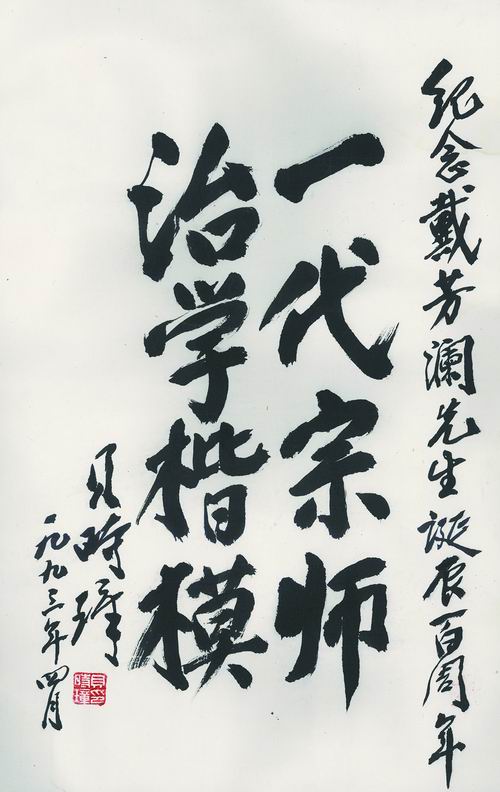 纪念戴芳澜先生诞辰一百周年
一代宗师
治学楷模
贝时璋
一九九三年四月
貝時璋印